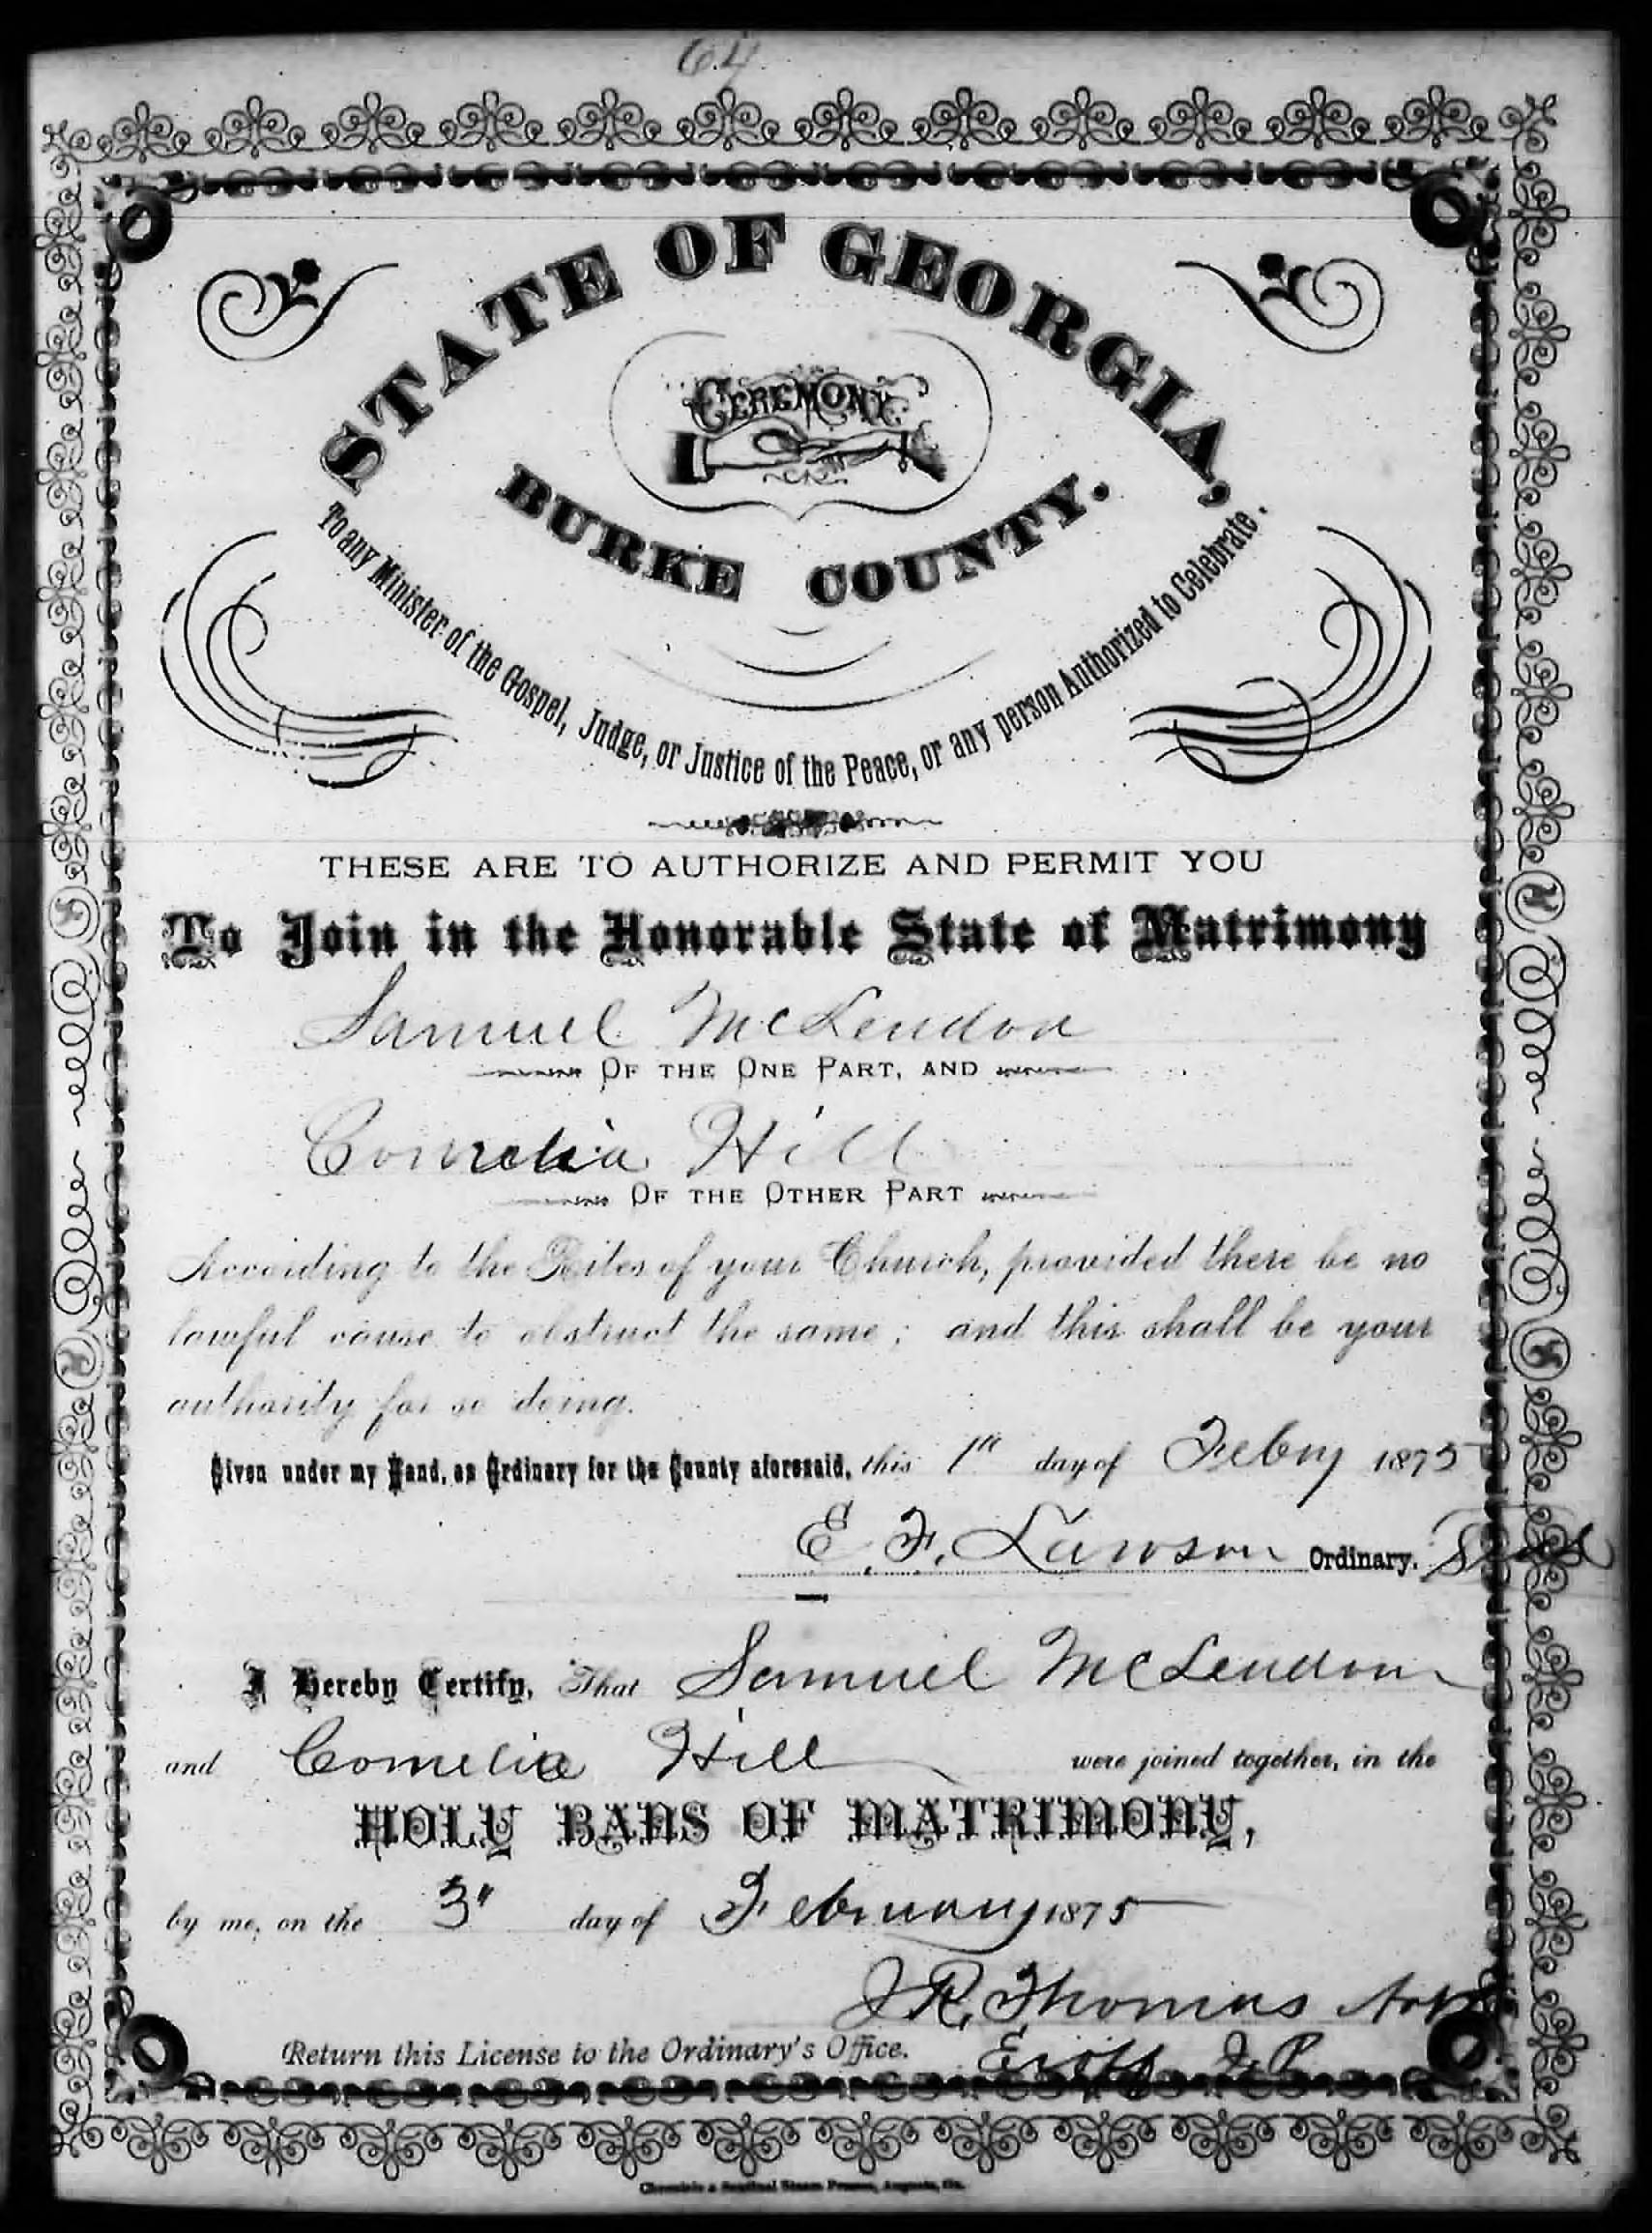 64
STATE OF GEORGIA,
CEREMONY
BURKE COUNTY.
To any Minister of the Gospel, Judge, or Justice of the Peace, or any person Authorized to Celebrate.
THESE ARE TO AUTHORIZE AND PERMIT YOU
To Join in the Honorable State of Matrimony
Samuel McLendon
OF THE ONE PART, AND
Cornelia Hill
OF THE OTHER PART
According to the Rites of your Church, provided there be no
lawful cause to obstruct the same; and this shall be your
authority for so doing.
Given under my Hand, as Ordinary for the County aforesaid, this 1st day of Febry 1875
E. F. Lawson Ordinary.
I Hereby Certify, That Samuel McLendon
and Cornelia Hill were joined together, in the
HOLY BANS OF MATRIMONY,
by me, on the 3" day of February 1875
J. R. Thomas
Return this License to the Ordinary's Office. J.P.
Chronicle & Sentinel Steam Presses, Augusta, Ga.